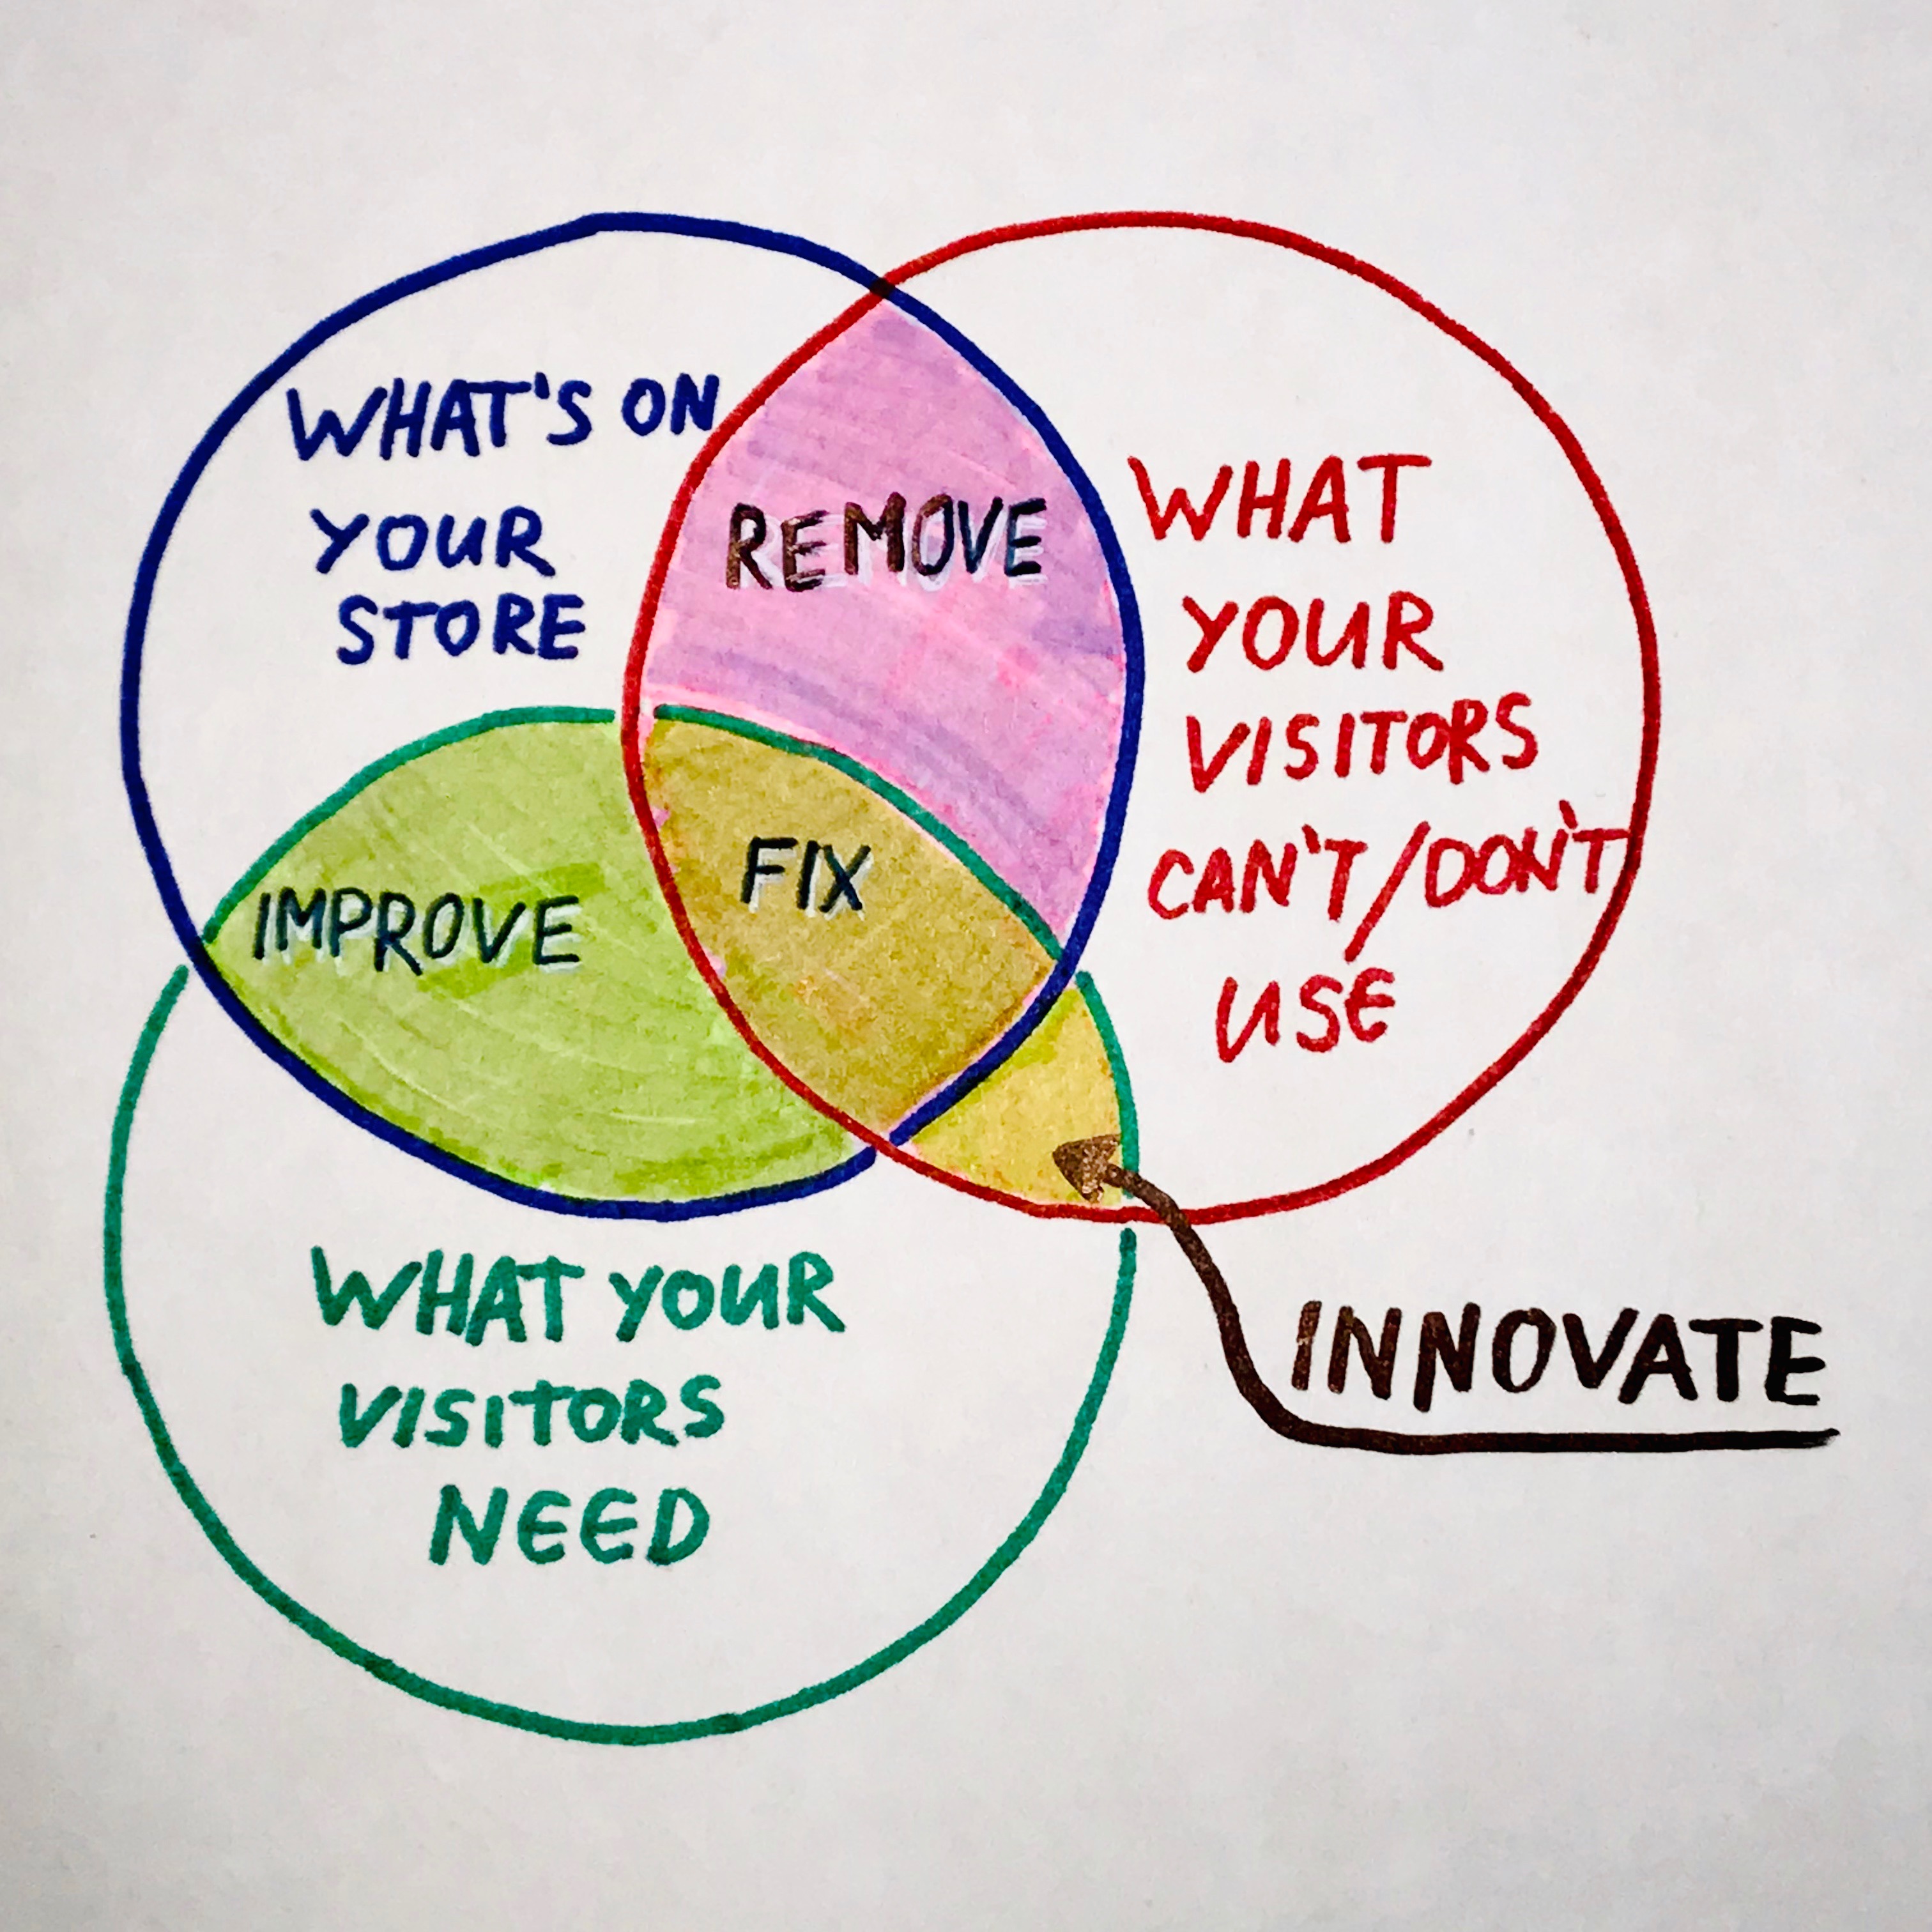 WHAT'S ON
YOUR
STORE
REMOVE
WHAT
YOUR
VISITORS
CAN'T/DON'T
USE
IMPROVE
FIX
WHAT YOUR
VISITORS
NEED
INNOVATE